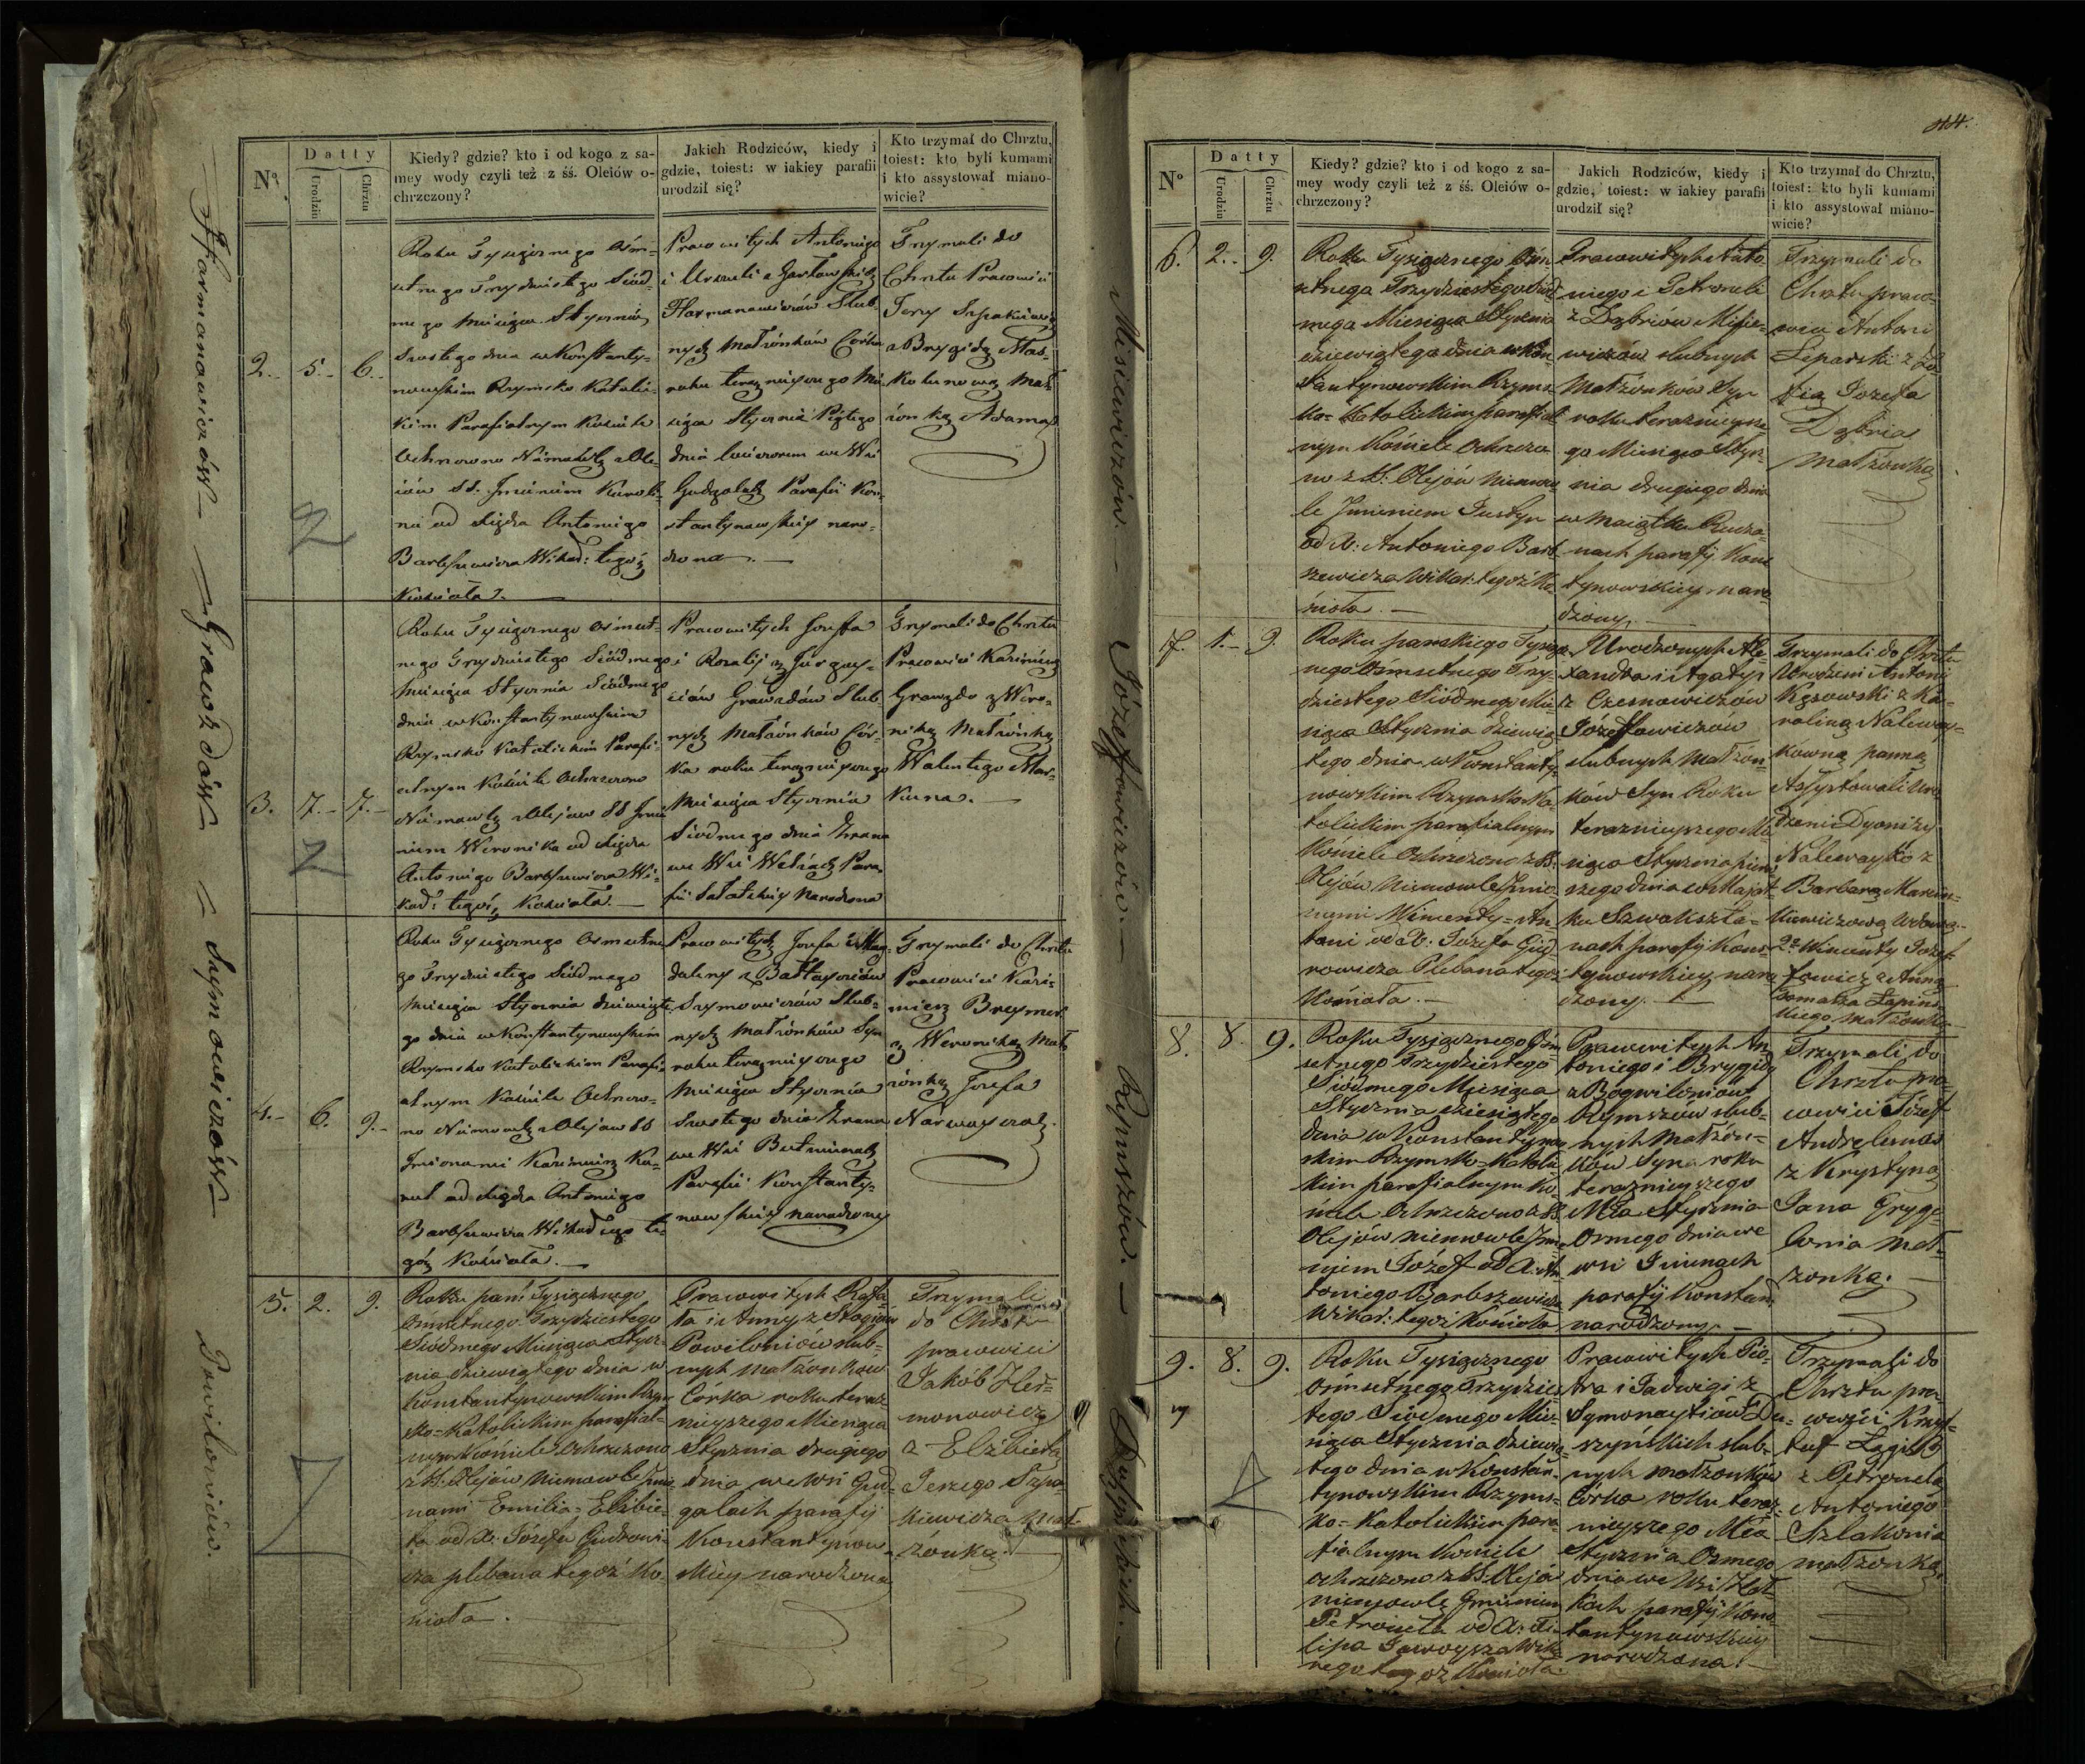 Harmanowiczów
Grawżdów
Szymowiczów
Powiloniów.
Nº
Datty
Urodzin
Chrztu
Kiedy? gdzie? kto i od kogo z sa-
mey wody czyli też z śś. Oleiów o-
chrzczony?
Jakich Rodziców, kiedy i
gdzie, toiest: w iakiey parafii
urodził się?
Kto trzymał do Chrztu,
toiest: kto byli kumami
i kto assystował miano-
wicie?
2. 5. 6.
Roku Tysiącznego Ośm-
setnego Trzydziestego Siód-
mego miesiąca Stycznia
Szóstego dnia w Konstanty-
nowskim Rzymsko Katolic-
kim Parafialnym Kościele
Ochrzczono Niemowlę z Ole-
iów SS. Imieniem Karoli-
na od Xiędza Antoniego
Barbszewicza Wikar: tegóż
Kościoła.
Pracowitych Antoniego
i Urszuli z
Harmanowiczów Ślub-
nych Małżonków Córka
roku teraznieyszego Mie-
siąca Stycznia Piątego
dnia wieczorem we Wsi
Gudgalach Parafii Kon-
stantynowskiey naro-
dzona.
Trzymali do
Chrztu Pracowici
Jerzy Szpakiewicz
z Brygidą Mas-
kolunową Mał-
żonką Adama
3. 7. 7.
Roku Tysiącznego ośmset-
nego Trzydziestego Siódmego
Miesiąca Stycznia Siódmego
dnia w Konstantynowskim
Rzymsko Katolickim Parafi-
alnym Kościele Ochrzczono
Niemowlę z Olejow SS Imie-
niem Weronika od Xiędza
Antoniego Barbszewicza Wi-
kar: tegóż Kościoła.
Pracowitych Jozefa
i Rozalij z Jurgay-
ciów Grawzdów Slub
nych Małżonków Cór-
ka roku teraznieyszego
Miesiąca Stycznia
Siodmego dnia zrana
we Wsi Para
fii narodzona
Trzymali do Chrztu
Pracowici Kazimierz
Grawzdo z Wero-
niką Małżonką
Walentego Mar-
kuna.
4. 6. 9.
Roku Tysiącznego Osmsetne
go Trzydziestego Siódmego
Miesiąca Stycznia dziewiąte
go dnia w Konstantynowskim
Rzymsko Katolickim Parafi-
alnym Kościele Ochrzczo-
no Niemowlę z Olejow SS
Imionami Kazimierz Ka-
rol od Xiędza Antoniego
Barbszewicza Wikarego te-
góż Kościoła.
Pracowitych Jozefa i Mag-
daleny z
Szymowiczów Slub-
nych Małżonków Syn
roku teraznieyszego
Miesiąca Stycznia
Szostego dnia zrana
we Wsi
Parafii Konstanty-
nowskiey narodzony
Trzymali do Chrztu
Pracowici Kazi-
mierz
z Weroniką Mał-
żonką Jozefa
5. 2. 9.
Roku pań: Tysiącznego
Osmsetnego Trzydziestego
Siódmego Miesiąca Stycz-
nia dziewiątego dnia w
Konstantynowskim Rzym-
sko-Katolickim parafial-
nym Kościele Ochrzczono
z SS. Olejów Niemowle Imio-
nami Emilia-Elżbie-
ta od X: Józefa Gudrowi-
cza plebana tegoż Ko-
ścioła.
Pracowitych Rafa-
ła i Anny z
Powiloniów slub-
nych małżonkow
Córka roku teraz-
nieyszego Miesiąca
Stycznia drugiego
dnia we wsi Gud-
galach parafij
Konstantynow-
skiey narodzona
Trzymali
do Chrztu
pracowici
Jakób Her-
monowicz
z Elżbietą
Jerzego Szpa-
kiewicza mał-
żonką.
Misiewiczów.
Józefowiczów.
Rymszów.
Duszyńskich.
Nº
Datty
Urodzin
Chrztu
Kiedy? gdzie? kto i od kogo z sa-
mey wody czyli też z śś. Oleiów o-
chrzczony?
Jakich Rodziców, kiedy i
gdzie, toiest: w iakiey parafii
urodził się?
Kto trzymał do Chrztu,
toiest: kto byli kumami
i kto assystował miano-
wicie?
6. 2. 9.
Roku Tysiącznego Ośm
setnego Trzydziestego Siód
mego Miesiąca Stycznia
dziewiątego dnia w Kon
stantynowskim Rzyms-
ko-Katolickim parafial
nym Kościele Ochrzczo
no z SS. Olejów Niemow
le Imieniem Justyn
od X: Antoniego Barb
szewicza Wikar: tegoż Ko-
ścioła.
Pracowitych Anto
niego i Petroneli
z Dąbriów Misie-
wiczów slubnych
Małżonków Syn
roku teraznieysze
go Miesiąca Stycz-
nia drugiego dnia
w Maiątku Rudza-
nach parafij Kons
tynowskiey naro
dzony.
Trzymali do
Chrztu praco-
wici Antoni
Leparski z Zo
fią Jozefa
Dąbria
małżonką
7. 1. 9.
Roku pańskiego Tysiącz
nego Osmsetnego Trzy-
dziestego Siódmego Mie-
siąca Stycznia dziewią
tego dnia w Konstanty-
nowskim Rzymsko Ka-
tolickim parafialnym
Kościele Ochrzczono z SS.
Olejów Niemowle Imio-
nami Wincenty-An
toni od X: Józefa Gud
rowicza Plebana tegoż
Kościoła.
Urodzonych Ale-
xandra i Agatyi
z Czesnowiczów
Józefowiczów
slubnych małżon-
ków Syn Roku
teraznieyszego Mie-
siąca Stycznia pierw
szego dnia w Maiąt-
ku Szwaksztá-
nach parafij Kons-
tynowskiey naro
dzony.
Trzymali do Chrztu
Urodzeni Antoni
Kęsowski z Ka-
roliną Naleway-
kowną panną
Assystowali Uro
dzeni Dyonizy
Nalewayko z
Barbarą Marcin-
kiewiczową Wdową.
2º Wincenty Józe-
fowicz z Anną
Tomasza Łapińs-
kiego małżonką
8. 8. 9.
Roku Tysiącznego Ośm
setnego Trzydziestego
Siódmego Miesiąca
Stycznia dziewiątego
dnia w Konstantynow
skim Rzymsko-Katolic
kim parafialnym Ko-
ściele Ochrzczono z SS.
Olejów Niemowle Imie
niem Józef od X: An
toniego Barbszewicza
Wikar: tegoż Kościoła
Pracowitych An
toniego i Brygidy
z Bogwiloniów
Rymszow slub-
nych małżon-
ków Syn roku
teraznieyszego
Mca Stycznia
Osmego dnia we
wsi
parafij Konstan
narodzony.
Trzymali do
Chrztu pra-
cowici Józef
z Krystyną
Jana Gryge-
lonia mał-
żonką.
9. 8. 9.
Roku Tysiącznego
Ośmsetnego Trzydzies
tego Siódmego Mie-
siąca Stycznia dziewią-
tego dnia w Konstan-
tynowskim Rzyms-
ko-Katolickim para
fialnym Kościele
ochrzczono z SS. Olejów
niemowle Imieniem
Petronela od X: Fi-
lipa Jawoysza Wika
rego tegoż Kościoła.
Pracowitych Pio-
tra i Jadwigi z
Symonaytiów Du-
szyńskich slub-
nych małżonków
Córka roku teraz-
nieyszego Mca
Stycznia Osmego
dnia we Wsi
parafij Kons
tantynowskiey
narodzona.
Trzymali do
Chrztu pra-
cowici Krzysz-
tof
z Petronelą
Antoniego
Szlakonia
małżonką.